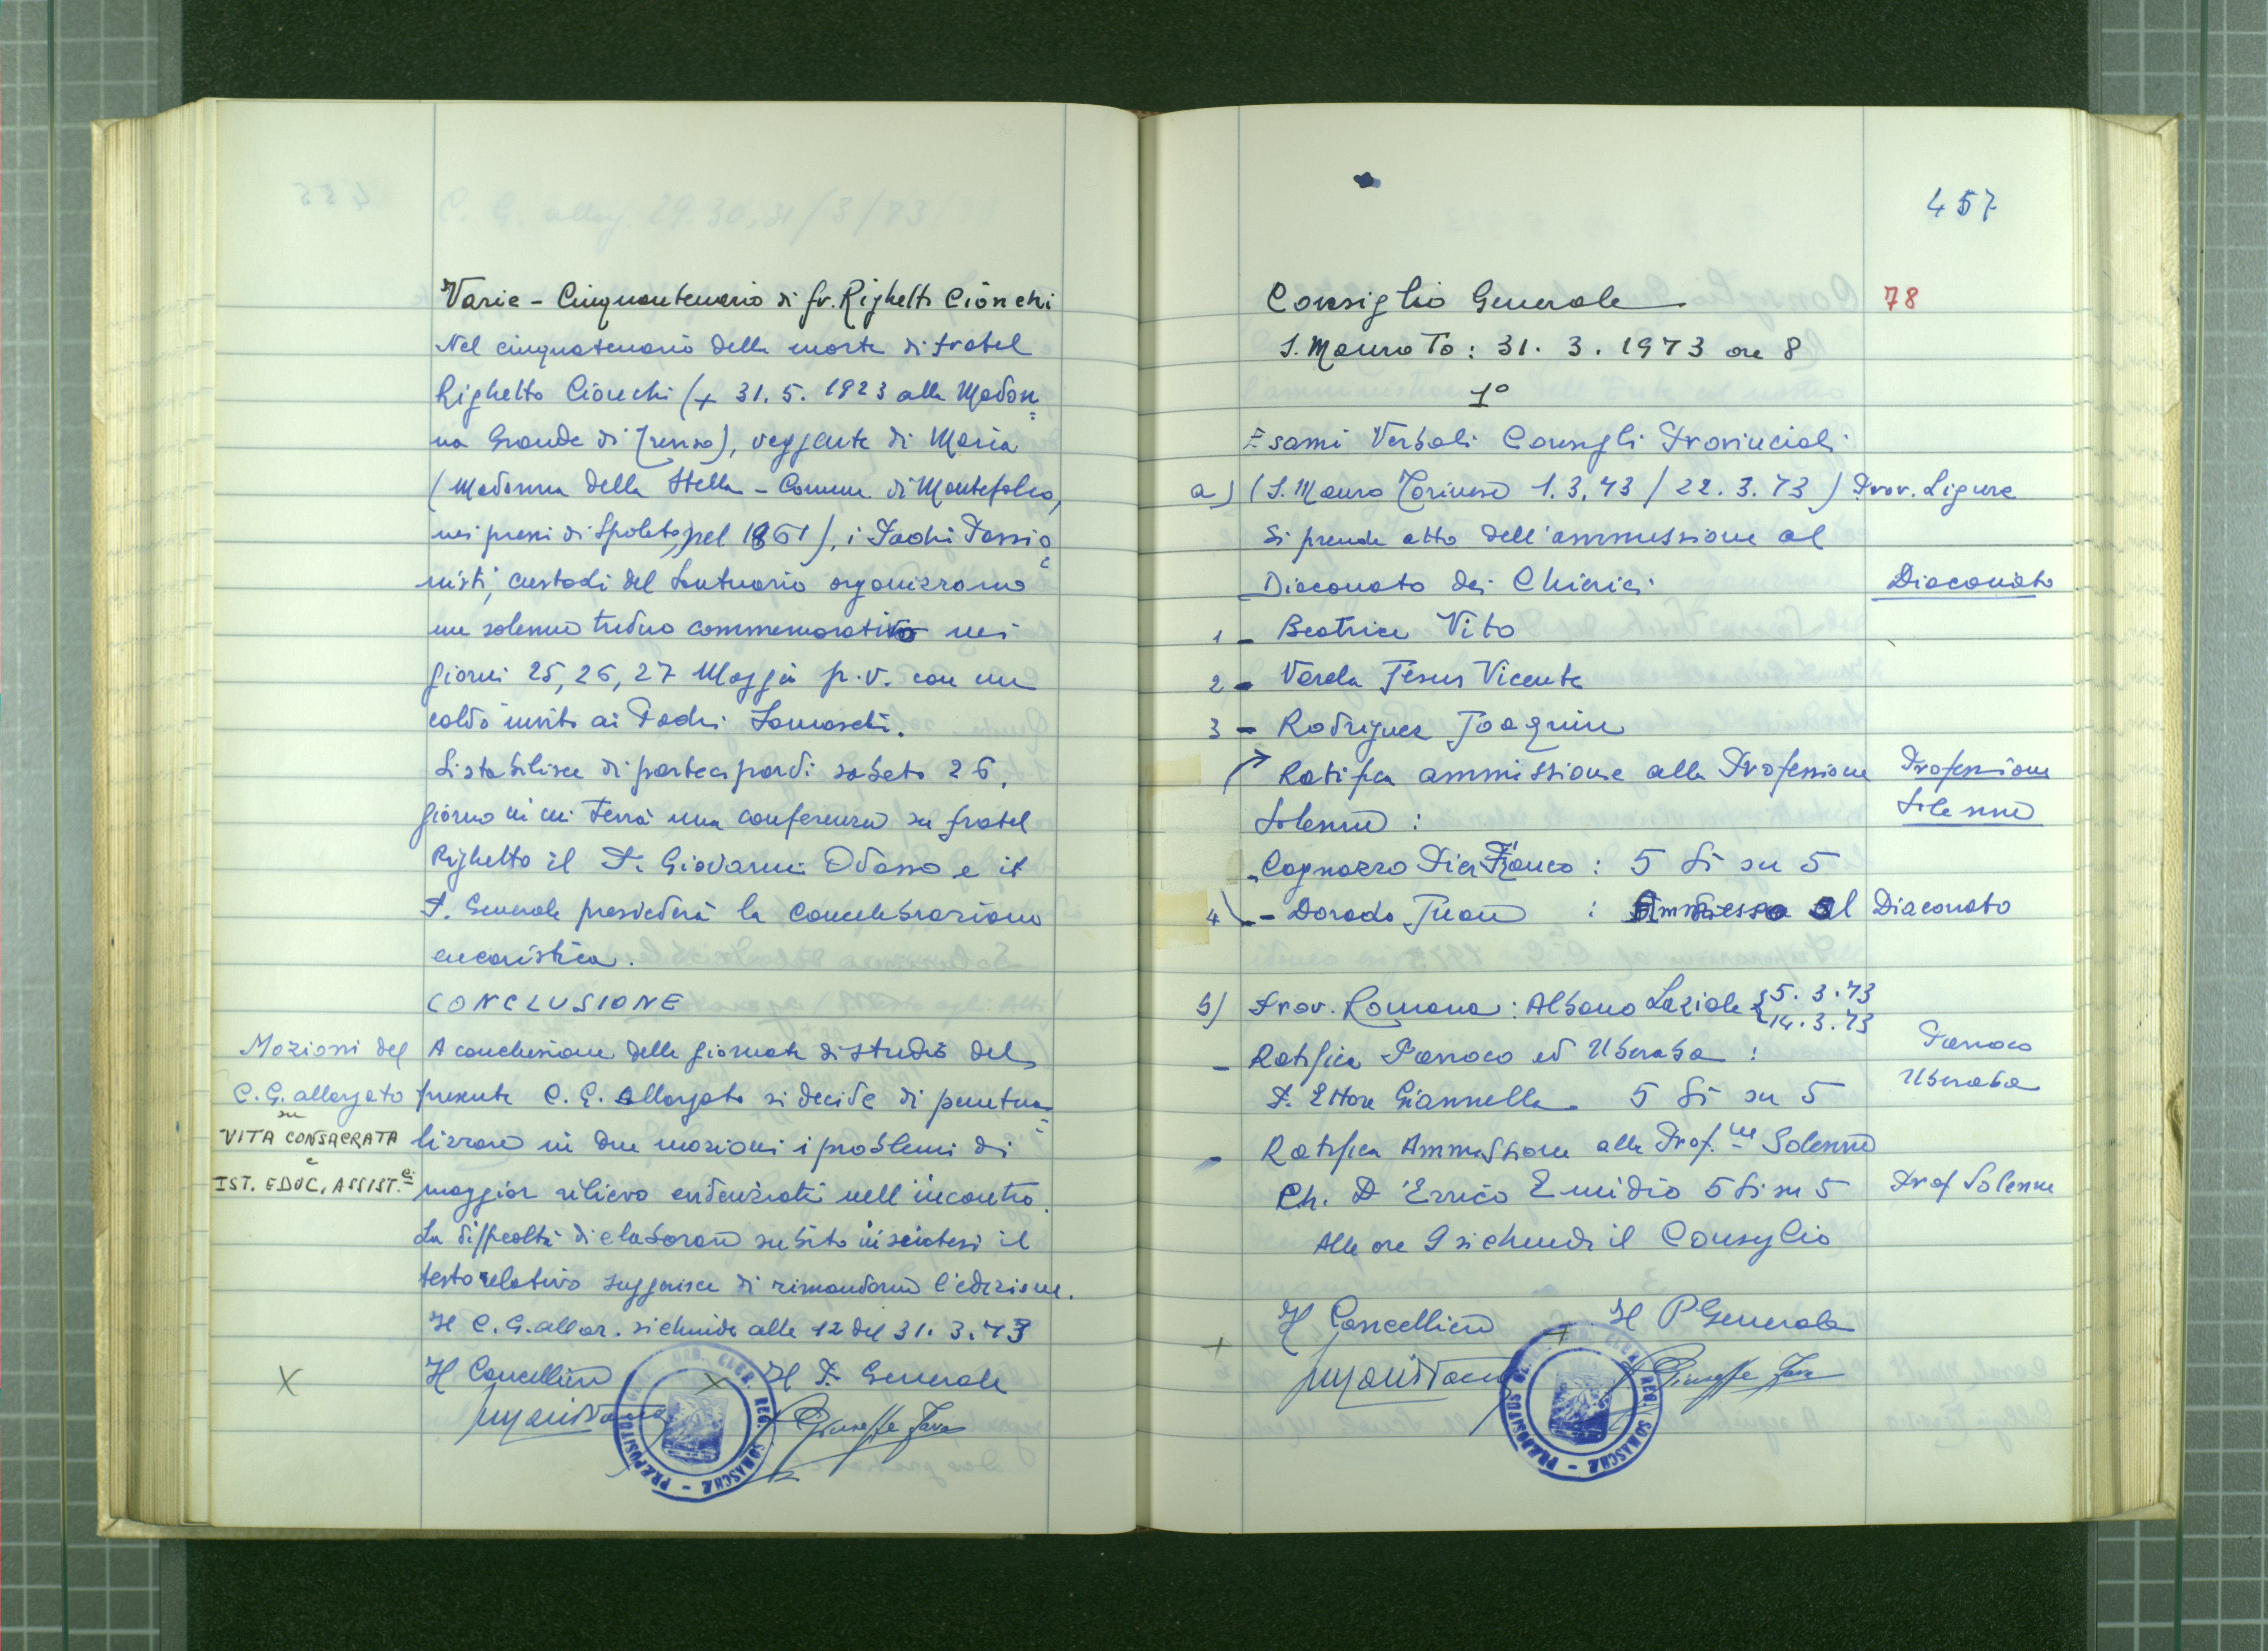 Varie - Cinquantenario di fr. Righetto Cionchi
Nel cinquatenario della morte di fratel
Righetto Cionchi (+ 31. 5. 1923 alla Madon=
na Grande di Treviso), veggente di Maria
(Madonna della Stella - Comun. di Montefalco,
nei pressi di Spoleto, nel 1861), i Padri Passio=
nisti, custodi del Santuario organizzano
un solenne triduo commemorativo nei
giorni 25, 26, 27 Maggio p.v. con un
caldo invito ai Padri Somaschi.
Si stabilisce di parteciparvi sabato 26,
giorno in cui terrà una conferenza su fratel
Righetto il P. Giovanni Odasso e il
P. Generale presiederà la concelebrazione
eucaristica.
CONCLUSIONE
Mozioni del
C. G. allargato
su
VITA CONSACRATA
e
IST. EDUC. ASSIST.
A conclusione delle giornate di studio del
presente C. G. Allargato si decide di puntua=
lizzare in due mozioni i problemi di
maggior rilievo evidenziati nell'incontro.
La difficoltà di elaborare subito in sintesi il
testo relativo suggerisce di rimandarne l'edizione.
Il C. G. allar. si chiude alle 12 del 31. 3. 73
Il Cancelliere X Il P. Generale
X
Giuseppe Fava
PRÆPOSITUS GENERALIS ORD. CLER. REG. SOMASCHÆ
457
Consiglio Generale 78
S. Mauro To: 31. 3. 1973 ore 8
1°
Esami Verbali Consigli Provinciali
a) (S. Mauro Torinese 1. 3. 73 / 22. 3. 73) Prov. Ligure
Si prende atto dell'ammissione al
Diaconato dei Chierici Diaconato
1 - Beatrice Vito
2 - Varela Jesus Vicente
3 - Rodriguez Joaquin
Ratifica ammissione alla Professione Professione
Solenne : Solenne
- Cagnazzo Pier Franco : 5 Sì su 5
4 - Dorado Juan : Ammesso al Diaconato
b) Prov. Romana : Albano Laziale { 5. 3. 73
14. 3. 73
- Ratifica Parroco ed Uberaba : Parroco
Uberaba
P. Ettore Giannella 5 Sì su 5
- Ratifica Ammissione alla Prof.ne Solenne
Ch. D'Errico Emidio 5 Sì su 5 Prof Solenne
Alle ore 9 si chiude il Consiglio
Il Cancelliere Il P Generale
+ +
Giuseppe Fava
PRÆPOSITUS GENERALIS ORD. CLER. REG. SOMASCHÆ